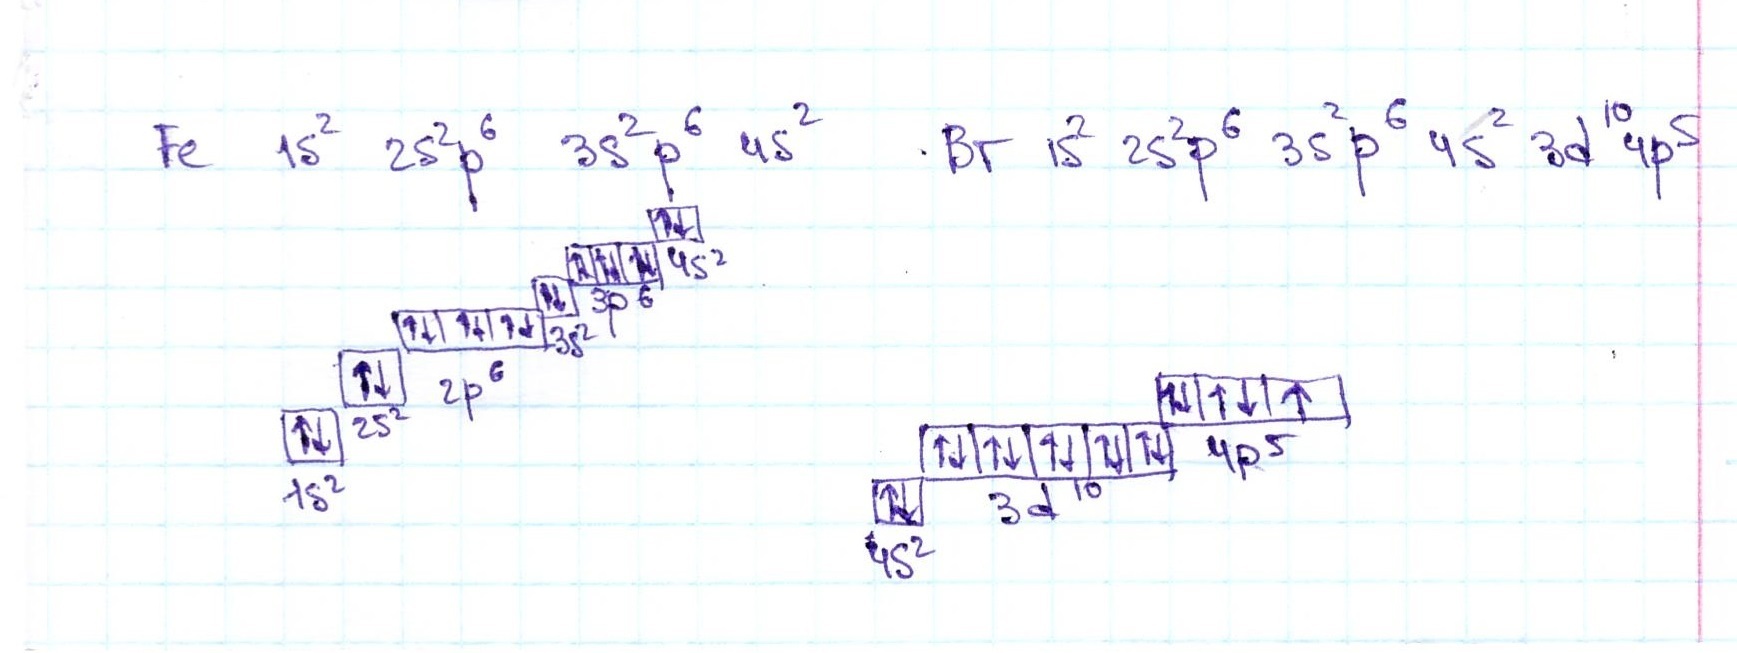 Fe 1s² 2s²p⁶ 3s²p⁶ 4s² . Br 1s² 2s²p⁶ 3s²p⁶ 4s² 3d¹⁰ 4p⁵
4s²
3p⁶
3s²
2p⁶
2s²
1s²
4p⁵
3d¹⁰
4s²